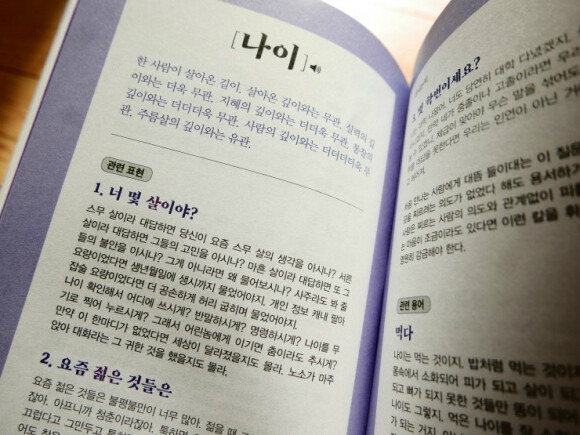 [나이]
한 사람이 살아온 길이. 살아온 깊이와는 무관. 실력의 깊
이와는 더욱 무관. 지혜의 깊이와는 더더욱 무관. 통찰의
깊이와는 더더더욱 무관. 사람의 깊이와는 더더더더욱 무
관. 주름살의 깊이와는 유관.
관련 표현
1. 너 몇 살이야?
스무 살이라 대답하면 당신이 요즘 스무 살의 생각을 아시나? 서른
살이라 대답하면 그들의 고민을 아시나? 마흔 살이라 대답하면 또 그
들의 불안을 아시나? 그게 아니라면 왜 물어보시나? 사주라도 봐 줄
요량이었다면 생년월일에 생시까지 물었어야지. 개인 정보 캐내 팔아
잡술 요량이었다면 더 공손하게 허리 굽히며 물었어야지.
나이 확인해서 어디에 쓰시게? 반말하시게? 명령하시게? 나이를 무
기로 찍어 누르시게? 그래서 어린놈에게 이기면 춤이라도 추시게?
만약 이 한마디가 없었다면 세상이 달라졌을지도 몰라. 노소가 마주
앉아 대화라는 그 귀한 것을 했을지도 몰라.
2. 요즘 젊은 것들은
요즘 젊은 것들은 불평불만이 너무 많아. 젊을 때
잖아. 아프니까 청춘이라잖아. 툭하면
끄럽다고. 그만두고
3. 몇 학번이세요?
너도 당연히 대학 다녔겠지.
만나는 사람에게 대뜸 들이대는 이 질문
찌르려는 의도가 없었다 해도 용서하
찔리는 사람의 의도와 관계없이 피
마음이 조금이라도 있다면 이런 칼을 휘
영원히 감금해야 한다.
관련 용어
먹다
나이는 먹는 것이지. 밥처럼 먹는 것이지
몸속에서 소화되어 피가 되고 살이 되
되고 뼈가 되지 못한 것들만 똥이 되
나이도 그렇지. 먹은 나이를 잘